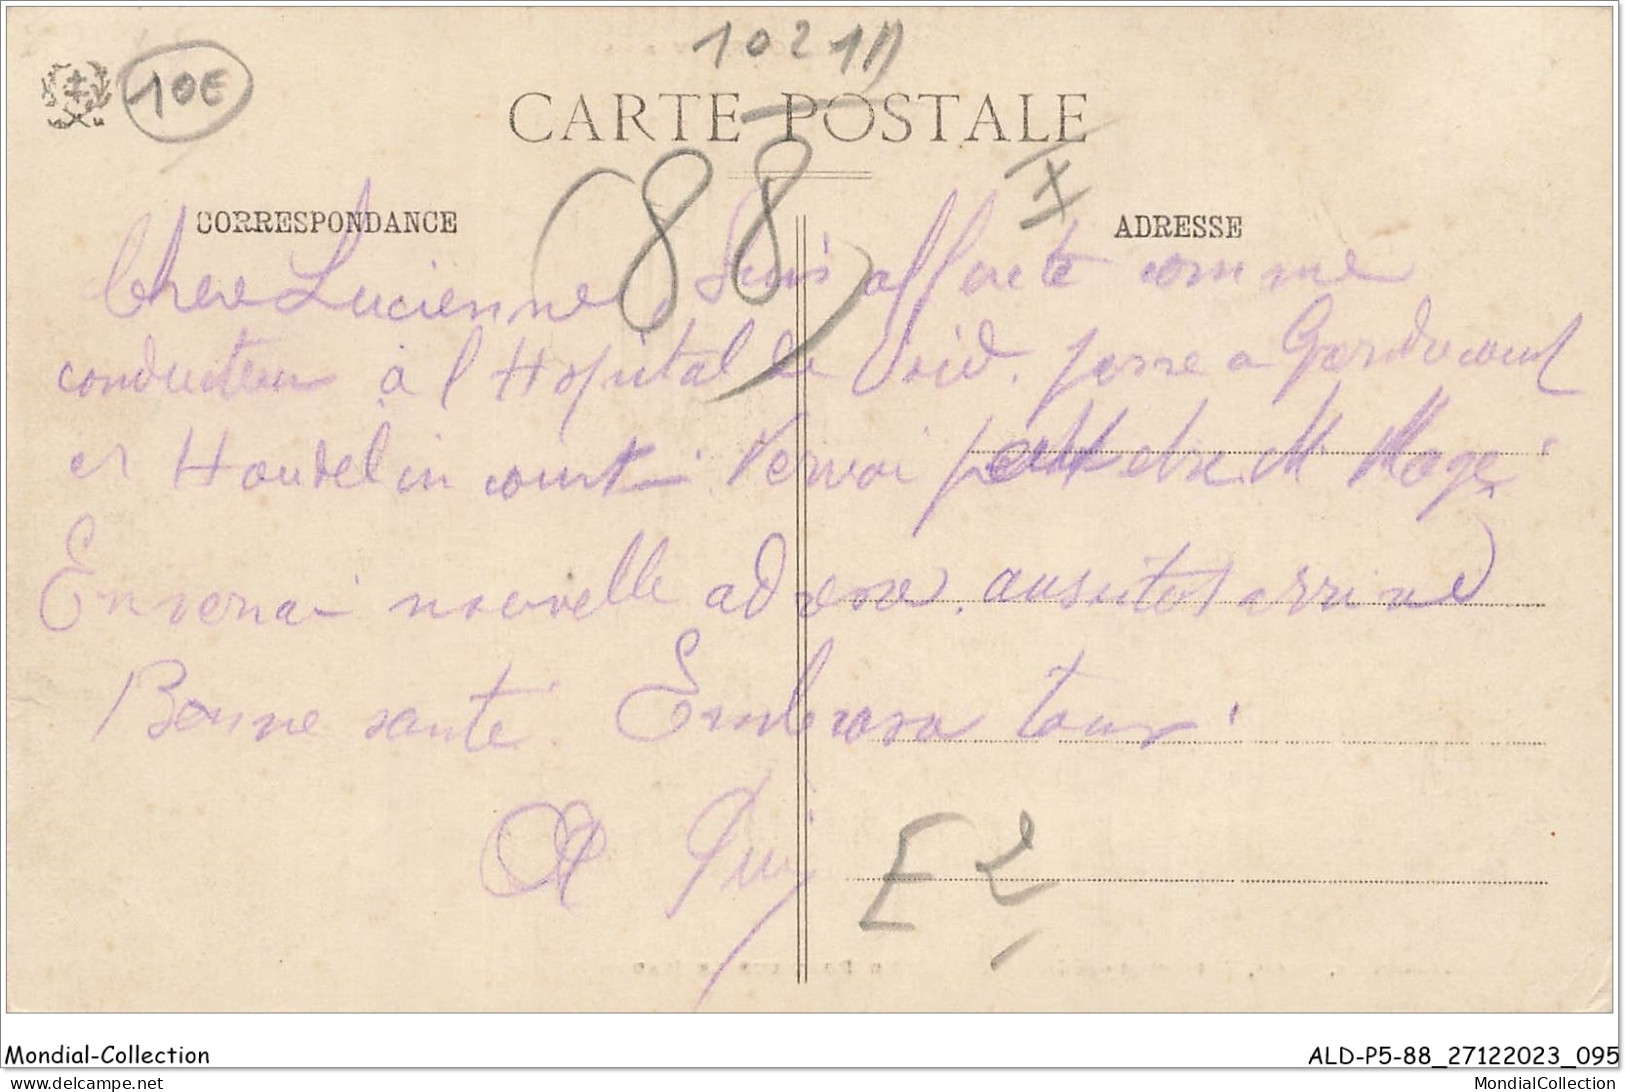 1021
10E
CARTE POSTALE
(88)
CORRESPONDANCE
ADRESSE
Chere Lucienne, Suis affecté comme
conducteur à l Hopital de Void. passe a Gondrecourt
et Houdelincourt. Verrai peut etre M
Enverrai nouvelle adresse. aussitot arrivé
Bonne santé. Embrasse tous.
E2
Mondial-Collection
ALD-P5-88_27122023_095
www.delcampe.net
MondialCollection